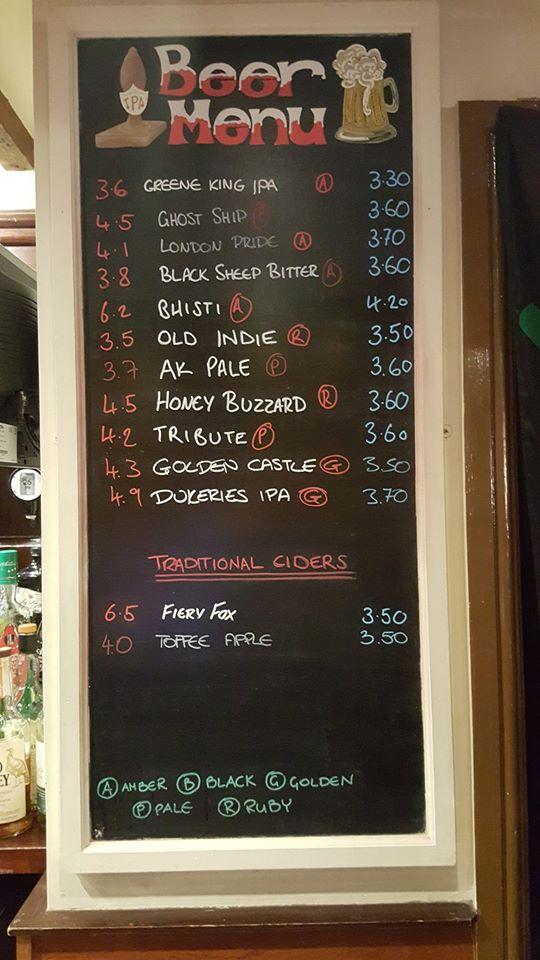 IPA
Beer
Menu
3.6 GREENE KING IPA A 3.30
4.5 GHOST SHIP P 3.60
4.1 LONDON PRIDE A 3.70
3.8 BLACK SHEEP BITTER A 3.60
6.2 BHISTI A 4.20
3.5 OLD INDIE R 3.50
3.7 AK PALE P 3.60
4.5 HONEY BUZZARD R 3.60
4.2 TRIBUTE P 3.60
4.3 GOLDEN CASTLE G 3.50
4.9 DUKERIES IPA G 3.70
TRADITIONAL CIDERS
6.5 FIERY FOX 3.50
4.0 TOFFEE APPLE 3.50
A AMBER B BLACK G GOLDEN
P PALE R RUBY